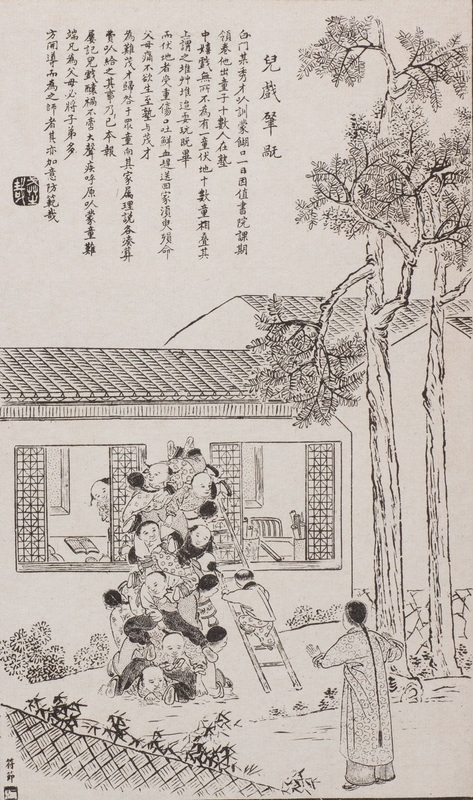 兒戲肇禍
白門某秀才以訓蒙餬口一日因值書院課期
領卷他出童子十數人在塾
中嬉戲無所不為有一童伏地十數童相疊其
上謂之堆艸堆造耍玩既畢
而伏地者受重傷口吐鮮血送回家須臾殞命
父母痛不欲生至塾与茂才
為難茂才歸咎于眾童向其家属理説各湊葬
費以給之其事乃已本報
屢記兒戲釀禍不啻大聲疾呼原以蒙童難
端兄為父母必將子弟多
方開導而為之師者其亦加意防範哉
符節